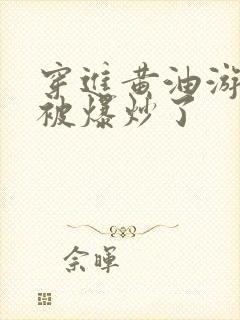 穿进黄油游
被爆炒了
佘晖